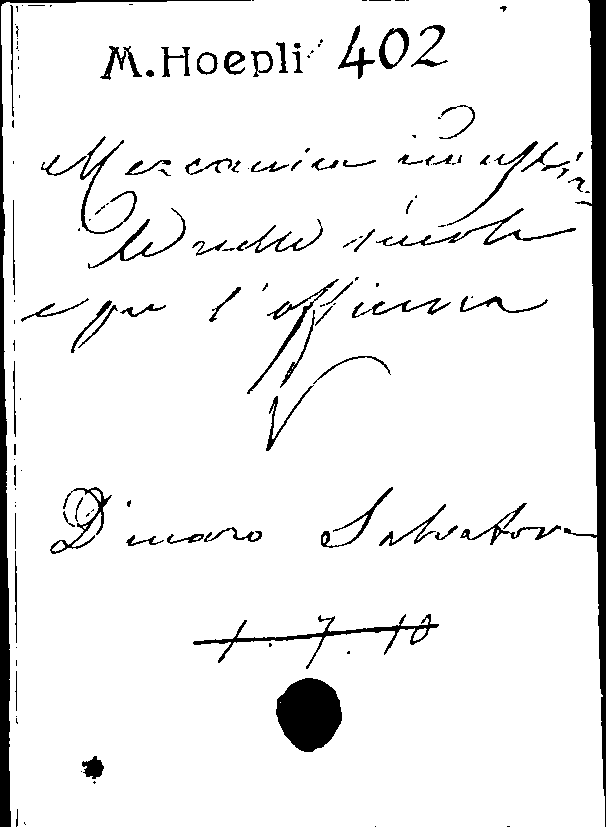 M. Hoepli 402
Meccanica industria
le nelle scuole
e per l'officina
V
Dinaro Salvatore
1. 7. 10